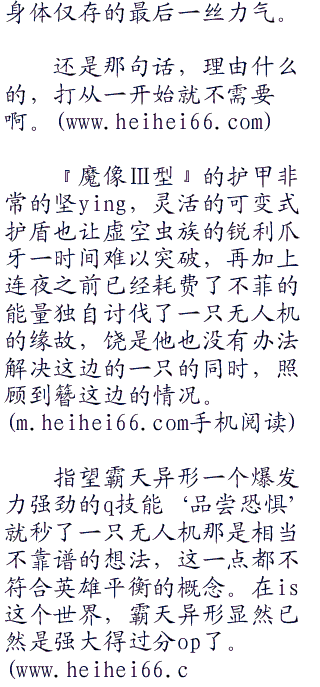 身体仅存的最后一丝力气。
还是那句话，理由什么
的，打从一开始就不需要
啊。(www.heihei66.com)
『魔像Ⅲ型』的护甲非
常的坚ying，灵活的可变式
护盾也让虚空虫族的锐利爪
牙一时间难以突破，再加上
连夜之前已经耗费了不菲的
能量独自讨伐了一只无人机
的缘故，饶是他也没有办法
解决这边的一只的同时，照
顾到簪这边的情况。
(m.heihei66.com手机阅读)
指望霸天异形一个爆发
力强劲的q技能‘品尝恐惧’
就秒了一只无人机那是相当
不靠谱的想法，这一点都不
符合英雄平衡的概念。在is
这个世界，霸天异形显然已
然是强大得过分op了。
(www.heihei66.c